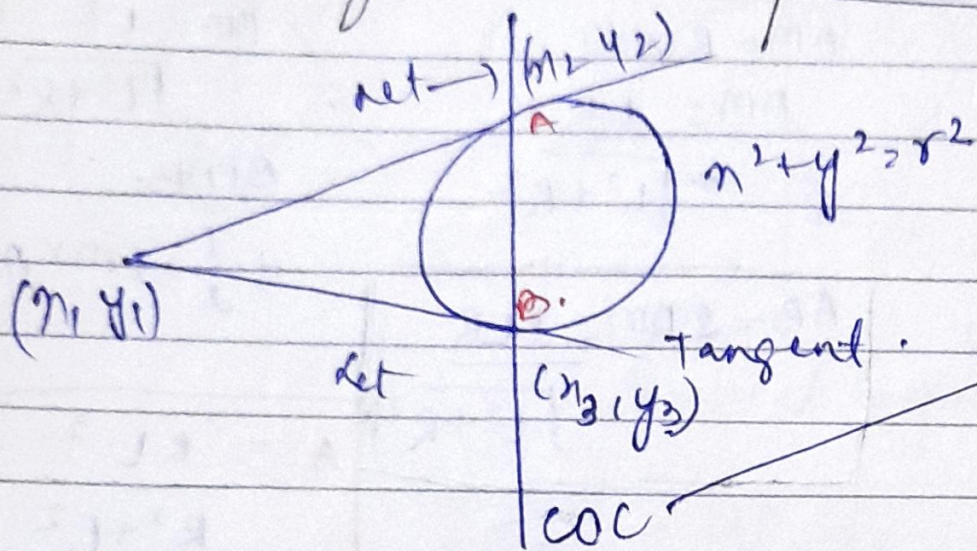 Let → (x2 y2)
A
x²+y²=r²
(x1 y1)
B.
Tangent.
Let
(x3, y3)
COC